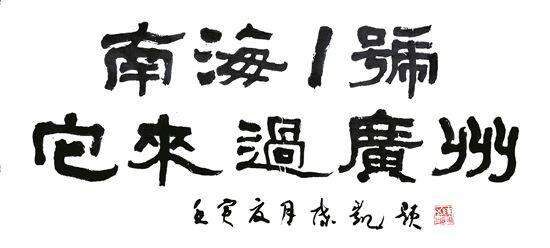 南海1號
它來過廣州
壬寅夏月 凱題